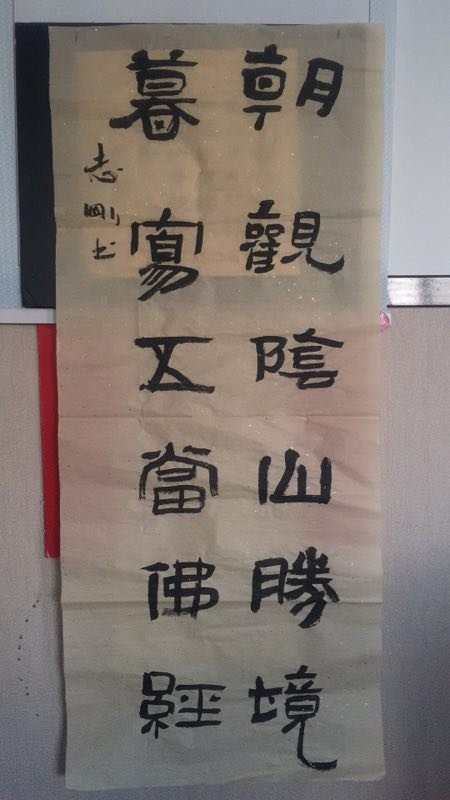 朝觀陰山勝境
暮寫五當佛經
志剛书